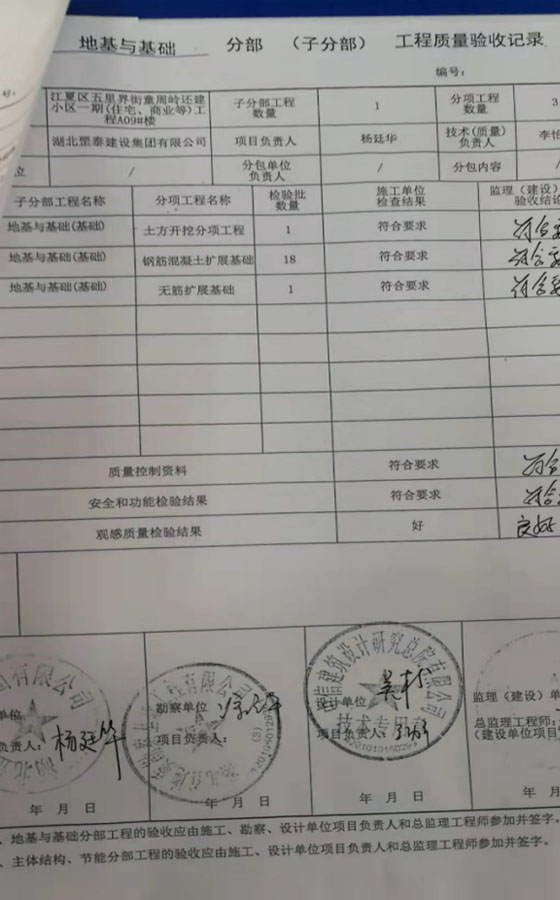 地基与基础 分部 （子分部） 工程质量验收记录
编号：
江夏区五里界街童周岭还建
小区一期(住宅、商业等)工
程A09#楼
子分部工程
数量
1
分项工程
数量
3
湖北罡泰建设集团有限公司
项目负责人
杨廷华
技术(质量)
负责人
位
/
分包单位
负责人
/
分包内容
/
子分部工程名称
分项工程名称
检验批
数量
施工单位
检查结果
监理（建设）
验收结论
地基与基础(基础)
土方开挖分项工程
1
符合要求
符合要
地基与基础(基础)
钢筋混凝土扩展基础
18
符合要求
符合要
地基与基础(基础)
无筋扩展基础
1
符合要求
符合要
质量控制资料
符合要求
符合
安全和功能检验结果
符合要求
符合
观感质量检验结果
好
良好
单位
负责人：杨廷华
年 月 日
勘察单位
项目负责人：
年 月 日
建筑设计研究总院有限公司
技术专用章
设计单位
项目负责人：
年 月 日
监理（建设）单
总监理工程师：
（建设单位项目
年 月
、地基与基础分部工程的验收应由施工、勘察、设计单位项目负责人和总监理工程师参加并签字。
、主体结构、节能分部工程的验收应由施工、设计单位项目负责人和总监理工程师参加并签字。